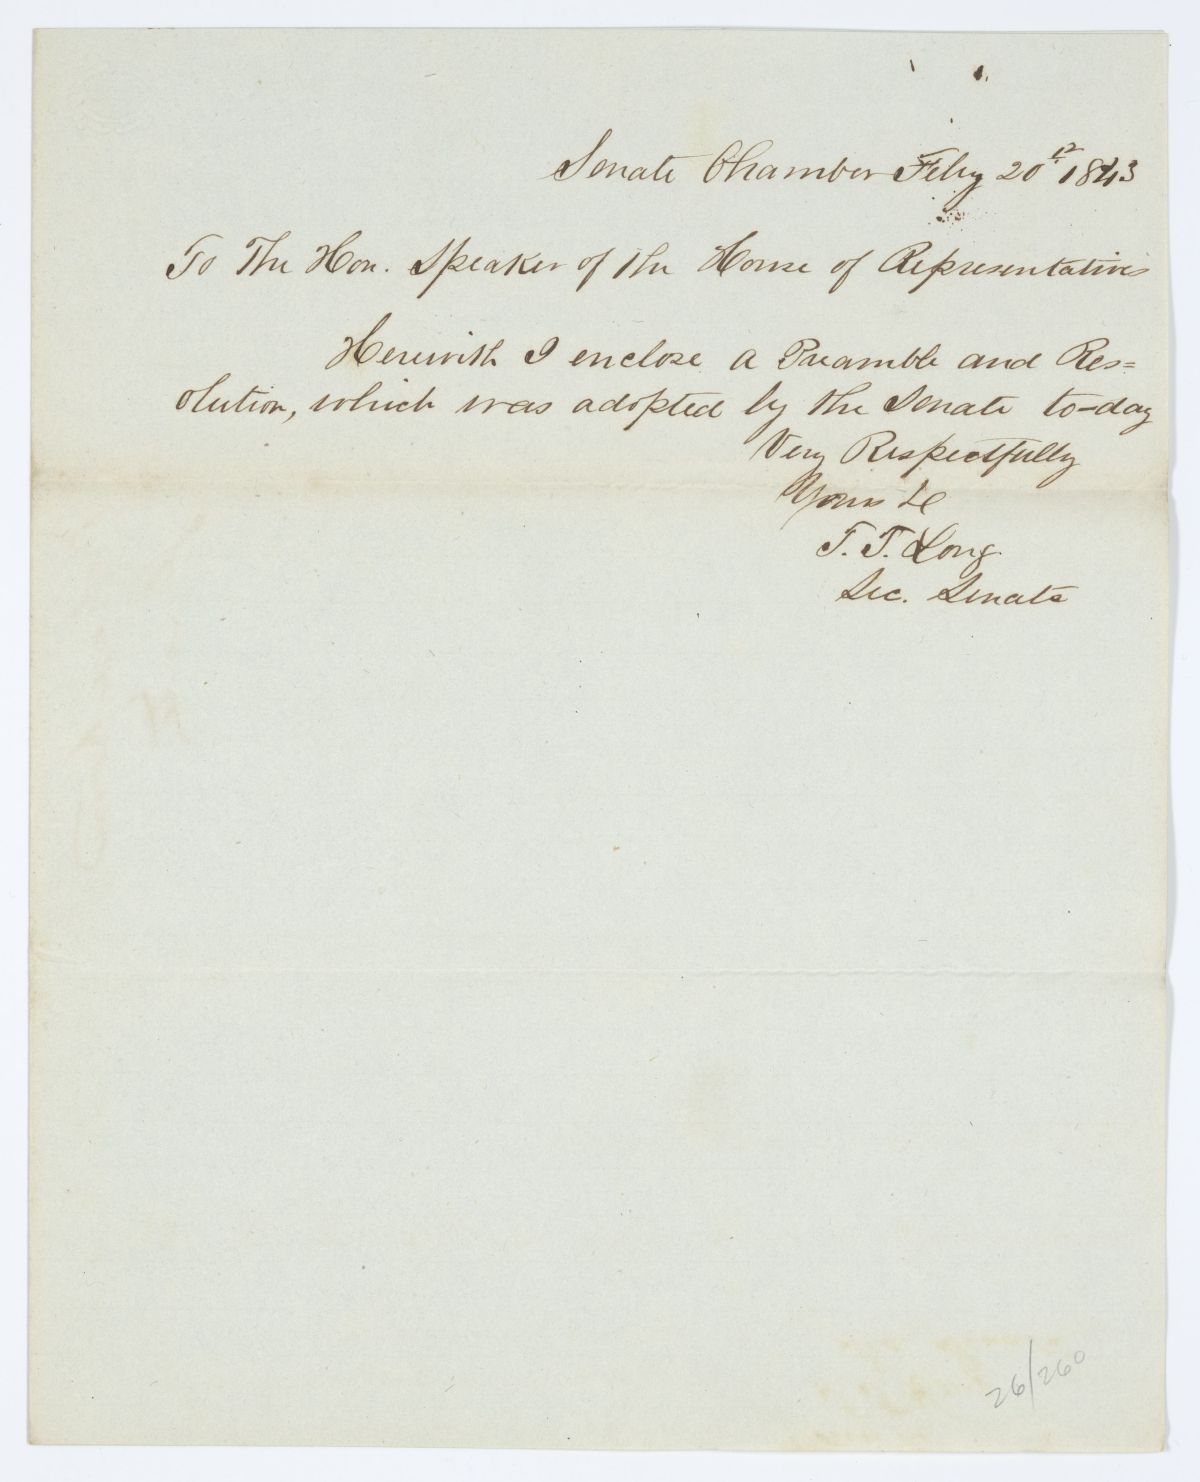 Senate Chamber Feby 20th 1843
To The Hon. Speaker of the House of Representatives
Herewith I enclose a Preamble and Res=
olution, which was adopted by the Senate to-day
Very Respectfully
Yours &c
T. T. Long
Sec. Senate
26/260